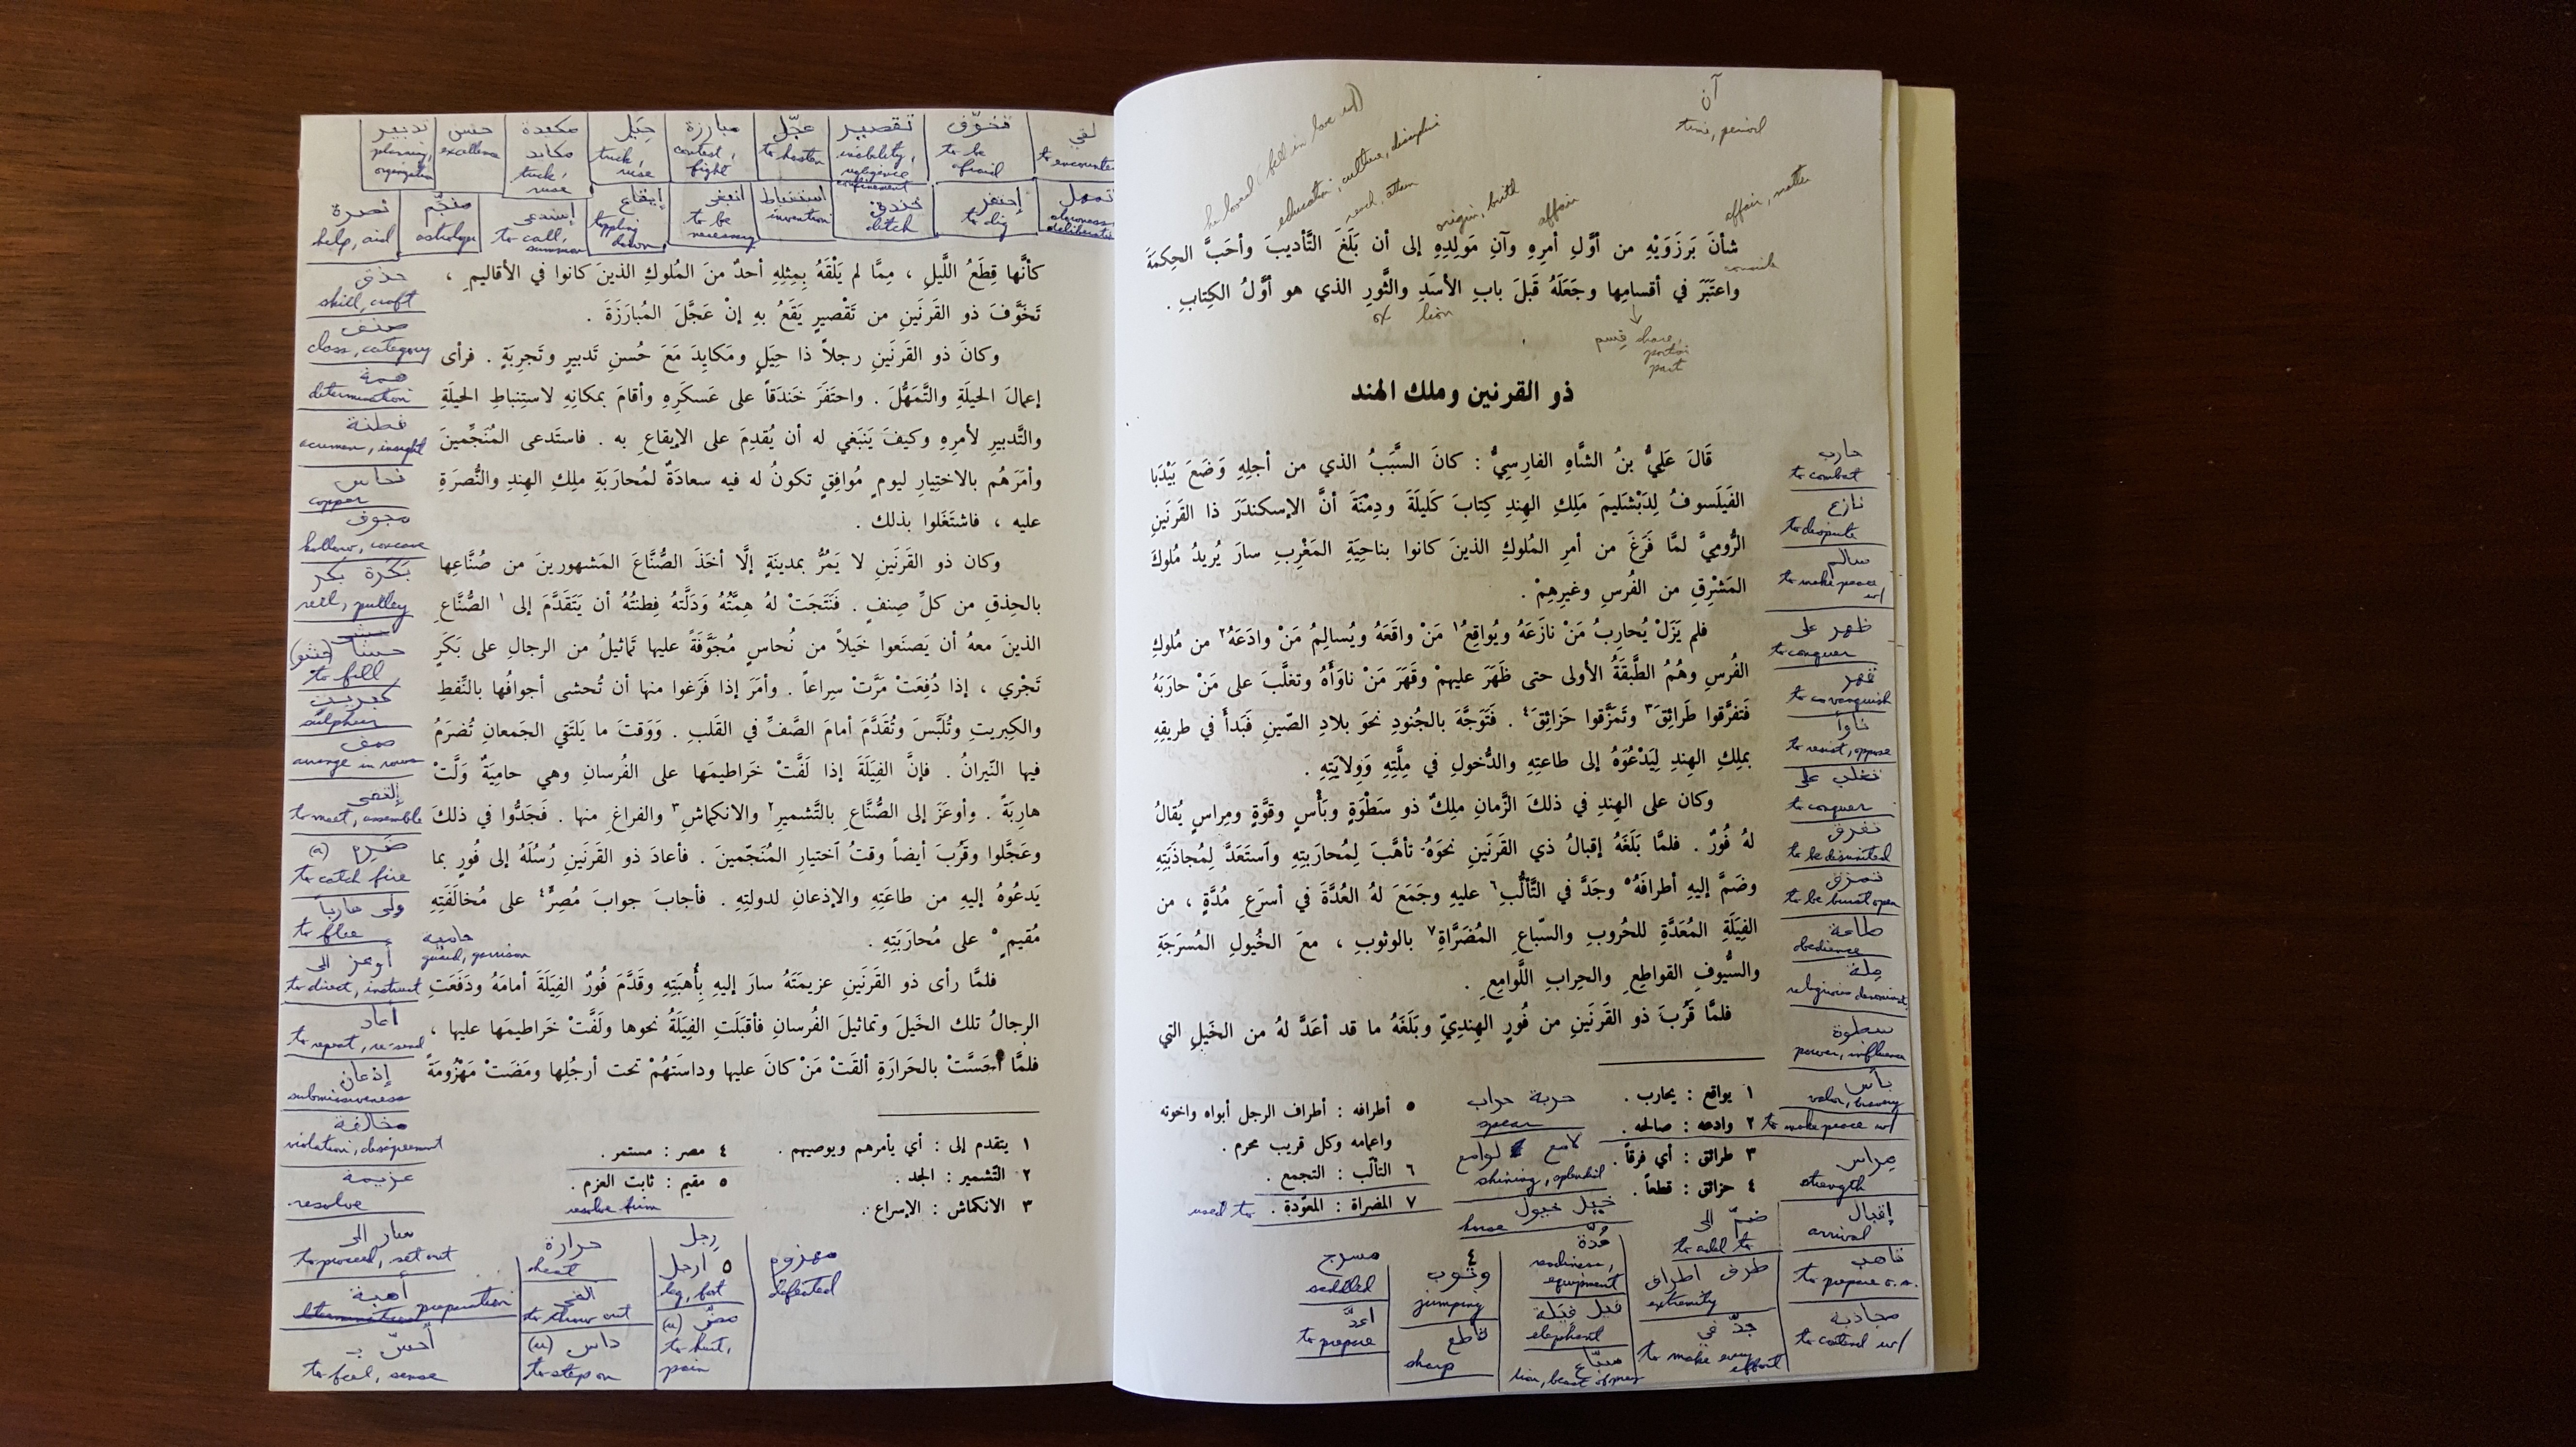 آن
time, period
he loved (fell in love with)
education, culture, discipline
reach, attain
origin, birth
affair
affair, matter
شأنَ بَرزَوَيْهِ من أوَّلِ أمرِهِ وآنِ مَولِدِهِ إلى أن بَلَغَ التَّأديبَ وأحَبَّ الحِكمَةَ
واعتَبَرَ في أقسامِها وجَعَلَهُ قَبلَ بابِ الأسَدِ والثَّورِ الذي هو أوَّلُ الكِتابِ .
ox
lion
قِسم share, portion part
ذو القرنين وملك الهند
قَالَ عَلِيُّ بنُ الشَّاهِ الفارِسِيُّ : كانَ السَّبَبُ الذي من أجلِهِ وَضَعَ بَيْدَبَا
الفَيلَسوفُ لِدَبْشَليمَ مَلِكِ الهِندِ كِتابَ كَليلَةَ ودِمْنَةَ أنَّ الإسكندَرَ ذا القَرنَينِ
الرُّوميَّ لمَّا فَرَغَ من أمرِ المُلوكِ الذينَ كانوا بناحِيَةِ المَغْرِبِ سارَ يُريدُ مُلوكَ
المَشْرِقِ من الفُرسِ وغيرِهِمْ .
فلم يَزَلْ يُحارِبُ مَنْ نازَعَهُ ويُواقِعُ١ مَنْ واقَعَهُ ويُسالِمُ مَنْ وادَعَهُ٢ من مُلوكِ
الفُرسِ وهُمُ الطَّبقَةُ الأولى حتى ظَهَرَ عليهمْ وقَهَرَ مَنْ ناوَأَهُ وتغلَّبَ على مَنْ حارَبَهُ
فَتفرَّقوا طَرائِقَ٣ وتَمَزَّقوا حَزائِقَ٤ . فَتَوَجَّهَ بالجُنودِ نحوَ بلادِ الصّينِ فَبَدأَ في طريقِهِ
بملِكِ الهِندِ لِيَدْعُوَهُ إلى طاعتِهِ والدُّخولِ في مِلَّتِهِ وَوِلايَتِهِ .
وكان على الهِندِ في ذلكَ الزَّمانِ ملِكٌ ذو سَطْوَةٍ وبَأْسٍ وقوَّةٍ ومِراسٍ يُقالُ
لهُ فُورٌ . فلمَّا بَلَغَهُ إقبالُ ذي القَرنَينِ نحوَهُ تأهَّبَ لِمُحاربتِهِ وآستَعَدَّ لِمُجاذَبَتِهِ
وضَمَّ إليهِ أطرافَهُ٥ وجَدَّ في التَّألُّبِ٦ عليهِ وجَمَعَ لهُ العُدَّةَ في أسرَعِ مُدَّةٍ ، من
الفِيَلَةِ المُعَدَّةِ للحُروبِ والسّباعِ المُضَرَّاةِ٧ بالوثوبِ ، معَ الخُيولِ المُسرَجَةِ
والسُّيوفِ القواطِعِ والحِرابِ اللَّوامِعِ .
فلمَّا قَرُبَ ذو القَرنَينِ من فُورٍ الهِنديّ وبَلَغَهُ ما قد أعَدَّ لهُ من الخَيلِ التي
١ يواقع : يحارب .
٢ وادعه : صالحه .
٣ طرائق : أي فرقاً .
٤ حزائق : قطعاً .
٥ أطرافه : أطراف الرجل أبواه واخوته
واعمامه وكل قريب محرم .
٦ التألّب : التجمع .
٧ المضراة : المعوّدة .
used to
حربة حراب
spear
لامع لوامع
shining, splendid
خيل خيول
horse
حارب
to combat
نازع
to dispute
سالم
to make peace w/
ظهر على
to conquer
قهر
to vanquish
ناوأ
to resist, oppose
تغلب على
to conquer
تفرق
to be disunited
تمزق
to be burst open
طاعة
obedience
مِلة
religious denominat.
سطوة
power, influence
بأس
valor, bravery
to make peace w/
مِراس
strength
إقبال
arrival
تأهب
to prepare o.s.
مجاذبة
to contend w/
ضمّ الى
to add to
طرف اطراف
extremity
جدّ في
to make every effort
عُدّة
readiness, equipment
فيل فيلة
elephant
سباع
lion, beast of prey
وثوب
jumping
قاطع
sharp
مسرج
saddled
اعدّ
to prepare
لقي
to encounter
تخوّف
to be afraid
تقصير
inability, negligence
عجّل
to hasten
مبارزة
contest, fight
حِيَل
trick, ruse
مكيدة
مكايد
trick, ruse
حسن
excellence
تدبير
planning, organization
تمهل
slowness deliberation
إحتفر
to dig
خندق
ditch
استنباط
invention
انبغى
to be necessary
إيقاع
toppling down
إستدعى
to call, summon
منجّم
astrologer
نصرة
help, aid
كأنَّها قِطَعُ اللَّيلِ ، مِمَّا لم يَلْقَهُ بِمِثلِهِ أحدٌ منَ المُلوكِ الذينَ كانوا في الأقاليمِ ،
تَخَوَّفَ ذو القَرنَينِ من تَقْصيرٍ يَقَعُ بهِ إنْ عَجَّلَ المُبارَزَةَ .
وكانَ ذو القَرنَينِ رجلاً ذا حِيَلٍ ومَكايِدَ مَعَ حُسنِ تَدبيرٍ وتَجرِبَةٍ . فرأى
إعمالَ الحيلَةِ والتَّمَهُّلَ . واحتَفَرَ خَندَقاً على عَسكَرِهِ وأقامَ بمكانِهِ لاستِنباطِ الحيلَةِ
والتَّدبيرِ لأمرِهِ وكيفَ يَنبَغي له أن يُقدِمَ على الإيقاعِ به . فاستَدعى المُنَجِّمينَ
وأمَرَهُم بالاختِيارِ ليومٍ مُوافِقٍ تكونُ له فيه سعادَةٌ لمُحارَبَةِ ملِكِ الهِندِ والنُّصرَةِ
عليه ، فاشتَغَلوا بذلك .
وكان ذو القَرنَينِ لا يَمُرُّ بمدينَةٍ إلَّا أخَذَ الصُّنَّاعَ المَشهورينَ من صُنَّاعِها
بالحِذقِ من كلِّ صِنفٍ . فَنَتَجَتْ لهُ هِمَّتُهُ وَدَلَّتهُ فِطنتُهُ أن يَتَقَدَّمَ إلى ١ الصُّنَّاعِ
الذينَ معهُ أن يَصنَعوا خَيلاً من نُحاسٍ مُجَوَّفَةً عليها تَماثيلُ من الرجالِ على بَكَرٍ
تَجْري ، إذا دُفِعَتْ مَرَّتْ سِراعاً . وأمَرَ إذا فَرَغوا منها أن تُحشى أجوافُها بالنِّفطِ
والكِبريتِ وتُلَبَّسَ وتُقَدَّمَ أمامَ الصَّفِّ في القَلبِ . وَوَقتَ ما يَلتَقي الجَمعانِ تُضرَمُ
فيها النّيرانُ . فإنَّ الفِيَلَةَ إذا لَفَّتْ خَراطيمَها على الفُرسانِ وهي حامِيَةٌ وَلَّتْ
هارِبَةً . وأوعَزَ إلى الصُّنَّاعِ بالتَّشميرِ٢ والانكماشِ٣ والفراغِ منها . فَجَدُّوا في ذلكَ
وعَجَّلوا وقَرُبَ أيضاً وقتُ آختِيارِ المُنَجّمينَ . فأعادَ ذو القَرنَينِ رُسُلَهُ إلى فُورٍ بما
يَدعُوهُ إليهِ من طاعَتِهِ والإذعانِ لدولتِهِ . فأجابَ جوابَ مُصِرٍّ٤ على مُخالَفَتِهِ
مُقيمٍ ٥ على مُحارَبَتِهِ .
فلمَّا رأى ذو القَرنَينِ عزيمَتَهُ سارَ إليهِ بِأُهبَتِهِ وقَدَّمَ فُورٌ الفِيَلَةَ أمامَهُ ودَفَعَتِ
الرجالُ تلك الخَيلَ وتماثيلَ الفُرسانِ فأقبَلَتِ الفِيَلَةُ نحوها ولَفَّتْ خَراطيمَها عليها ،
فلمَّا أحَسَّتْ بالحَرارَةِ ألقَتْ مَنْ كانَ عليها وداستَهُمْ تحت أرجُلِها ومَضَتْ مَهْزُومَةً
١ يتقدم إلى : أي يأمرهم ويوصيهم .
٢ التّشمير : الجد .
٣ الانكماش : الإسراع .
٤ مصر : مستمر .
٥ مقيم : ثابت العزم .
resolve firm
حذق
skill, craft
صنف
class, category
همة
determination
فطنة
acumen, insight
نحاس
copper
مجوف
hollow, concave
بَكَرة بكر
reel, pulley
حشا (حشو)
to fill
كبريت
sulphur
صف
arrange in rows
إلتقى
to meet, assemble
ضرِم (a)
to catch fire
ولى هارباً
to flee
حامية
guard, garrison
أوعز الى
to direct, instruct
أعاد
to repeat, re-send
إذعان
submissiveness
مخالفة
violation, disagreement
عزيمة
resolve
سار الى
to proceed, set out
أهبة
preparation
أحسّ بـ
to feel, sense
حرارة
heat
القى
to throw out
داس (u)
to step on
رِجل
ارجل
leg, foot
مضّ (u)
to hurt, pain
مهزوم
defeated